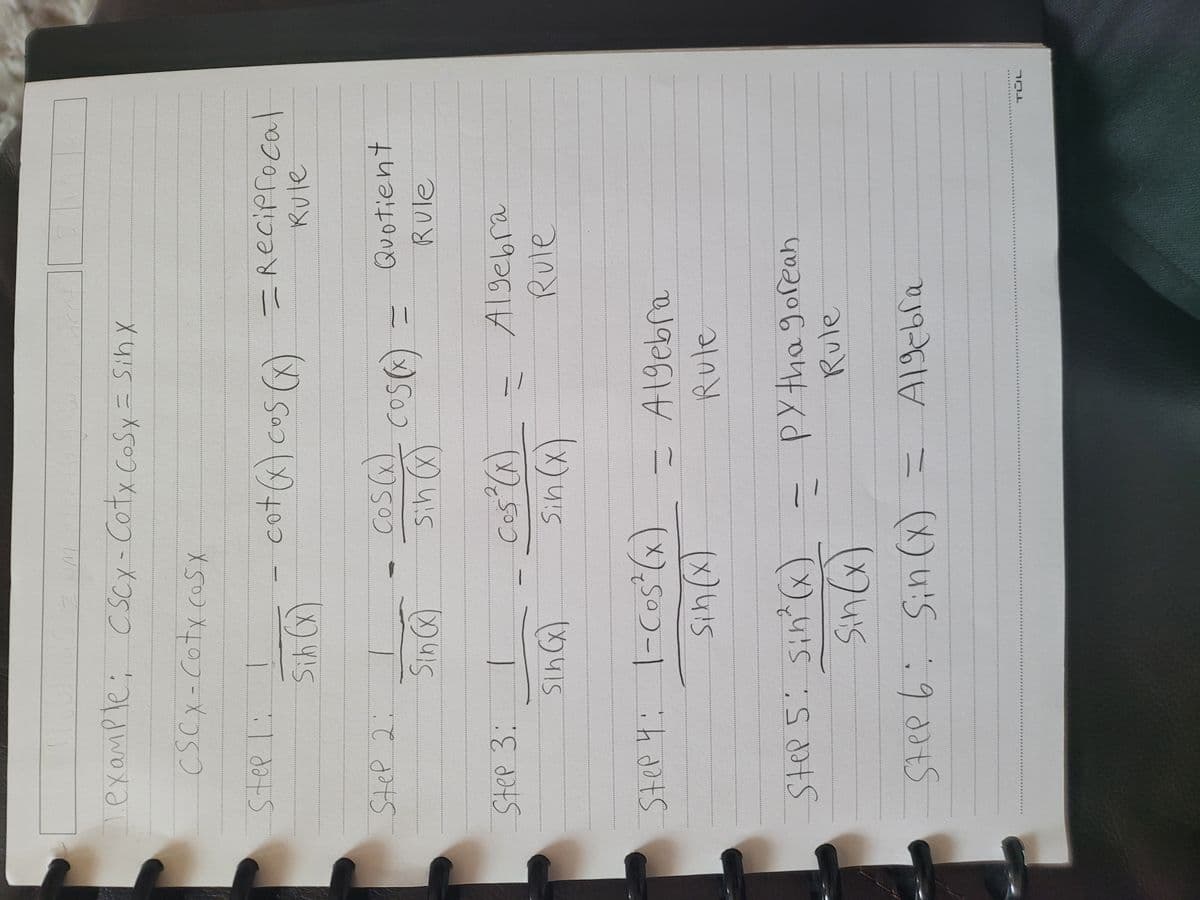 example: CSCx-Cotx Cosx = sinx
CSCx-Cotx cosx
Step 1: 1/sin(x) - cot(x) cos(x) = Reciprocal
Rule
Step 2: 1/sin(x) - cos(x)/sin(x) cos(x) = Quotient
Rule
Step 3: 1/sin(x) - cos²(x)/sin(x) = Algebra
Rule
Step 4: 1-cos²(x)/sin(x) = Algebra
Rule
Step 5: sin²(x)/sin(x) = pythagorean
Rule
Step 6: sin(x) = Algebra
TUL